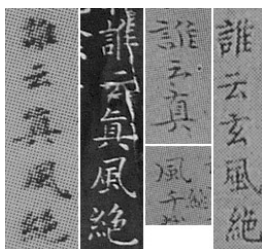 誰云真風絶
誰云眞風絶
誰云真
風千
誰云玄風絶